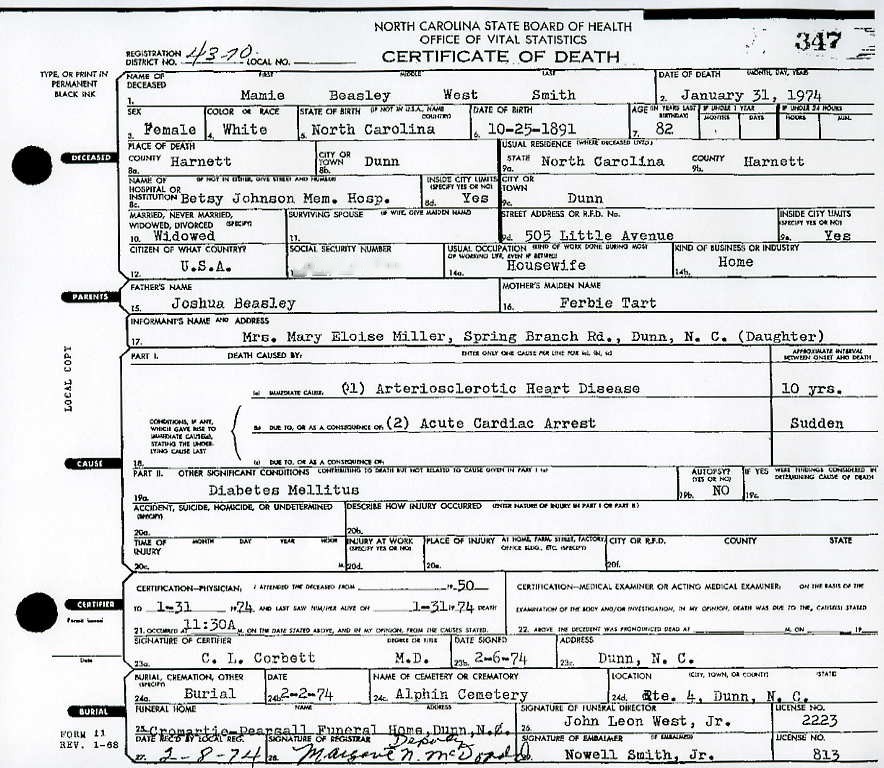 NORTH CAROLINA STATE BOARD OF HEALTH
OFFICE OF VITAL STATISTICS
CERTIFICATE OF DEATH
347
REGISTRATION DISTRICT NO. 43-70 LOCAL NO.
TYPE, OR PRINT IN PERMANENT BLACK INK
NAME OF DECEASED FIRST MIDDLE LAST DATE OF DEATH (MONTH, DAY, YEAR)
1. Mamie Beasley West Smith 2. January 31, 1974
SEX COLOR OR RACE STATE OF BIRTH (IF NOT IN U.S.A., NAME COUNTRY) DATE OF BIRTH AGE (IN YEARS LAST BIRTHDAY) IF UNDER 1 YEAR IF UNDER 24 HOURS
MONTHS DAYS HOURS MIN.
3. Female 4. White 5. North Carolina 6. 10-25-1891 7. 82
DECEASED
PLACE OF DEATH USUAL RESIDENCE (WHERE DECEASED LIVED)
COUNTY Harnett CITY OR TOWN Dunn STATE North Carolina COUNTY Harnett
8a. 8b. 9a. 9b.
NAME OF HOSPITAL OR INSTITUTION (IF NOT IN EITHER, GIVE STREET AND NUMBER) INSIDE CITY LIMITS (SPECIFY YES OR NO) CITY OR TOWN
8c. Betsy Johnson Mem. Hosp. 8d. Yes 9c. Dunn
MARRIED, NEVER MARRIED, WIDOWED, DIVORCED (SPECIFY) SURVIVING SPOUSE (IF WIFE, GIVE MAIDEN NAME) STREET ADDRESS OR R.F.D. No. INSIDE CITY LIMITS (SPECIFY YES OR NO)
10. Widowed 11. 9d. 505 Little Avenue 9e. Yes
CITIZEN OF WHAT COUNTRY? SOCIAL SECURITY NUMBER USUAL OCCUPATION (KIND OF WORK DONE DURING MOST OF WORKING LIFE, EVEN IF RETIRED) KIND OF BUSINESS OR INDUSTRY
12. U.S.A. 14a. Housewife 14b. Home
PARENTS
FATHER'S NAME MOTHER'S MAIDEN NAME
15. Joshua Beasley 16. Ferbie Tart
INFORMANT'S NAME AND ADDRESS
17. Mrs. Mary Eloise Miller, Spring Branch Rd., Dunn, N. C. (Daughter)
LOCAL COPY
PART I. DEATH CAUSED BY: ENTER ONLY ONE CAUSE PER LINE FOR (a), (b), (c) APPROXIMATE INTERVAL BETWEEN ONSET AND DEATH
(a) IMMEDIATE CAUSE: (1) Arteriosclerotic Heart Disease 10 yrs.
CONDITIONS, IF ANY, WHICH GAVE RISE TO IMMEDIATE CAUSE(a), STATING THE UNDERLYING CAUSE LAST
(b) DUE TO, OR AS A CONSEQUENCE OF: (2) Acute Cardiac Arrest Sudden
18. (c) DUE TO, OR AS A CONSEQUENCE OF:
CAUSE
PART II. OTHER SIGNIFICANT CONDITIONS CONTRIBUTING TO DEATH BUT NOT RELATED TO CAUSE GIVEN IN PART I (a) AUTOPSY? (YES OR NO) IF YES WERE FINDINGS CONSIDERED IN DETERMINING CAUSE OF DEATH
19a. Diabetes Mellitus 19b. NO 19c.
ACCIDENT, SUICIDE, HOMICIDE, OR UNDETERMINED (SPECIFY) DESCRIBE HOW INJURY OCCURRED (ENTER NATURE OF INJURY IN PART I OR PART II)
20a. 20b.
TIME OF INJURY MONTH DAY YEAR HOUR INJURY AT WORK (SPECIFY YES OR NO) PLACE OF INJURY AT HOME, FARM, STREET, FACTORY, OFFICE BLDG., ETC. (SPECIFY) CITY OR R.F.D. COUNTY STATE
20c. M. 20d. 20e. 20f.
CERTIFICATION—PHYSICIAN: I ATTENDED THE DECEASED FROM 19 50 CERTIFICATION—MEDICAL EXAMINER OR ACTING MEDICAL EXAMINER: ON THE BASIS OF THE
CERTIFIER
TO 1-31 19 74 AND LAST SAW HIM/HER ALIVE ON 1-31 19 74 DEATH EXAMINATION OF THE BODY AND/OR INVESTIGATION, IN MY OPINION, DEATH WAS DUE TO THE CAUSE(S) STATED
21. OCCURRED AT 11:30A M. ON THE DATE STATED ABOVE, AND IN MY OPINION, FROM THE CAUSES STATED. 22. ABOVE THE DECEDENT WAS PRONOUNCED DEAD AT M. ON 19
SIGNATURE OF CERTIFIER DEGREE OR TITLE DATE SIGNED ADDRESS
Date
23a. C. L. Corbett M.D. 23b. 2-6-74 23c. Dunn, N. C.
BURIAL, CREMATION, OTHER (SPECIFY) DATE NAME OF CEMETERY OR CREMATORY LOCATION (CITY, TOWN, OR COUNTY) STATE
24a. Burial 24b. 2-2-74 24c. Alphin Cemetery 24d. Rte. 4, Dunn, N. C.
BURIAL
FUNERAL HOME NAME ADDRESS SIGNATURE OF FUNERAL DIRECTOR LICENSE NO.
25. Cromartie-Pearsall Funeral Home, Dunn, N.C. 26. John Leon West, Jr. 2223
FORM 11
REV. 1-68
DATE REC'D BY LOCAL REG. SIGNATURE OF REGISTRAR Deputy SIGNATURE OF EMBALMER (IF EMBALMED) LICENSE NO.
27. 2-8-74 28. Margaret N. McDonald Nowell Smith, Jr. 813